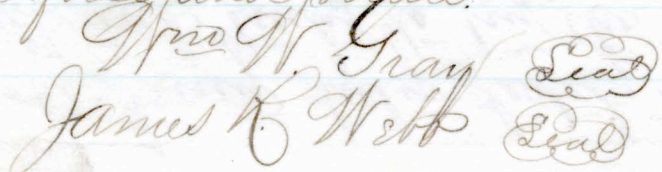 Wm W. Gray Seal
James R. Webb Seal